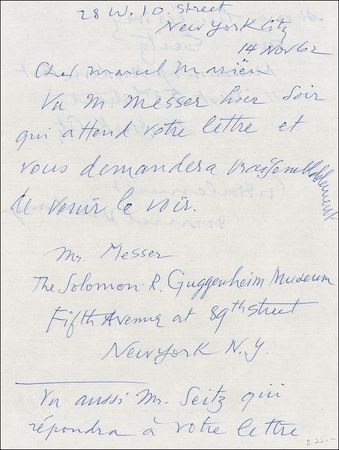 28 W. 10. Street
New York City
14 Nov 62
Cher Marcel Mariën
Vu M. Messer hier soir
qui attend votre lettre et
vous demandera vraisemblablement
de venir le voir.
Mr. Messer
The Solomon R. Guggenheim Museum
Fifth Avenue at 89th Street
New York N.Y.
Vu aussi Mr. Seitz qui
répondra à votre lettre
225.-